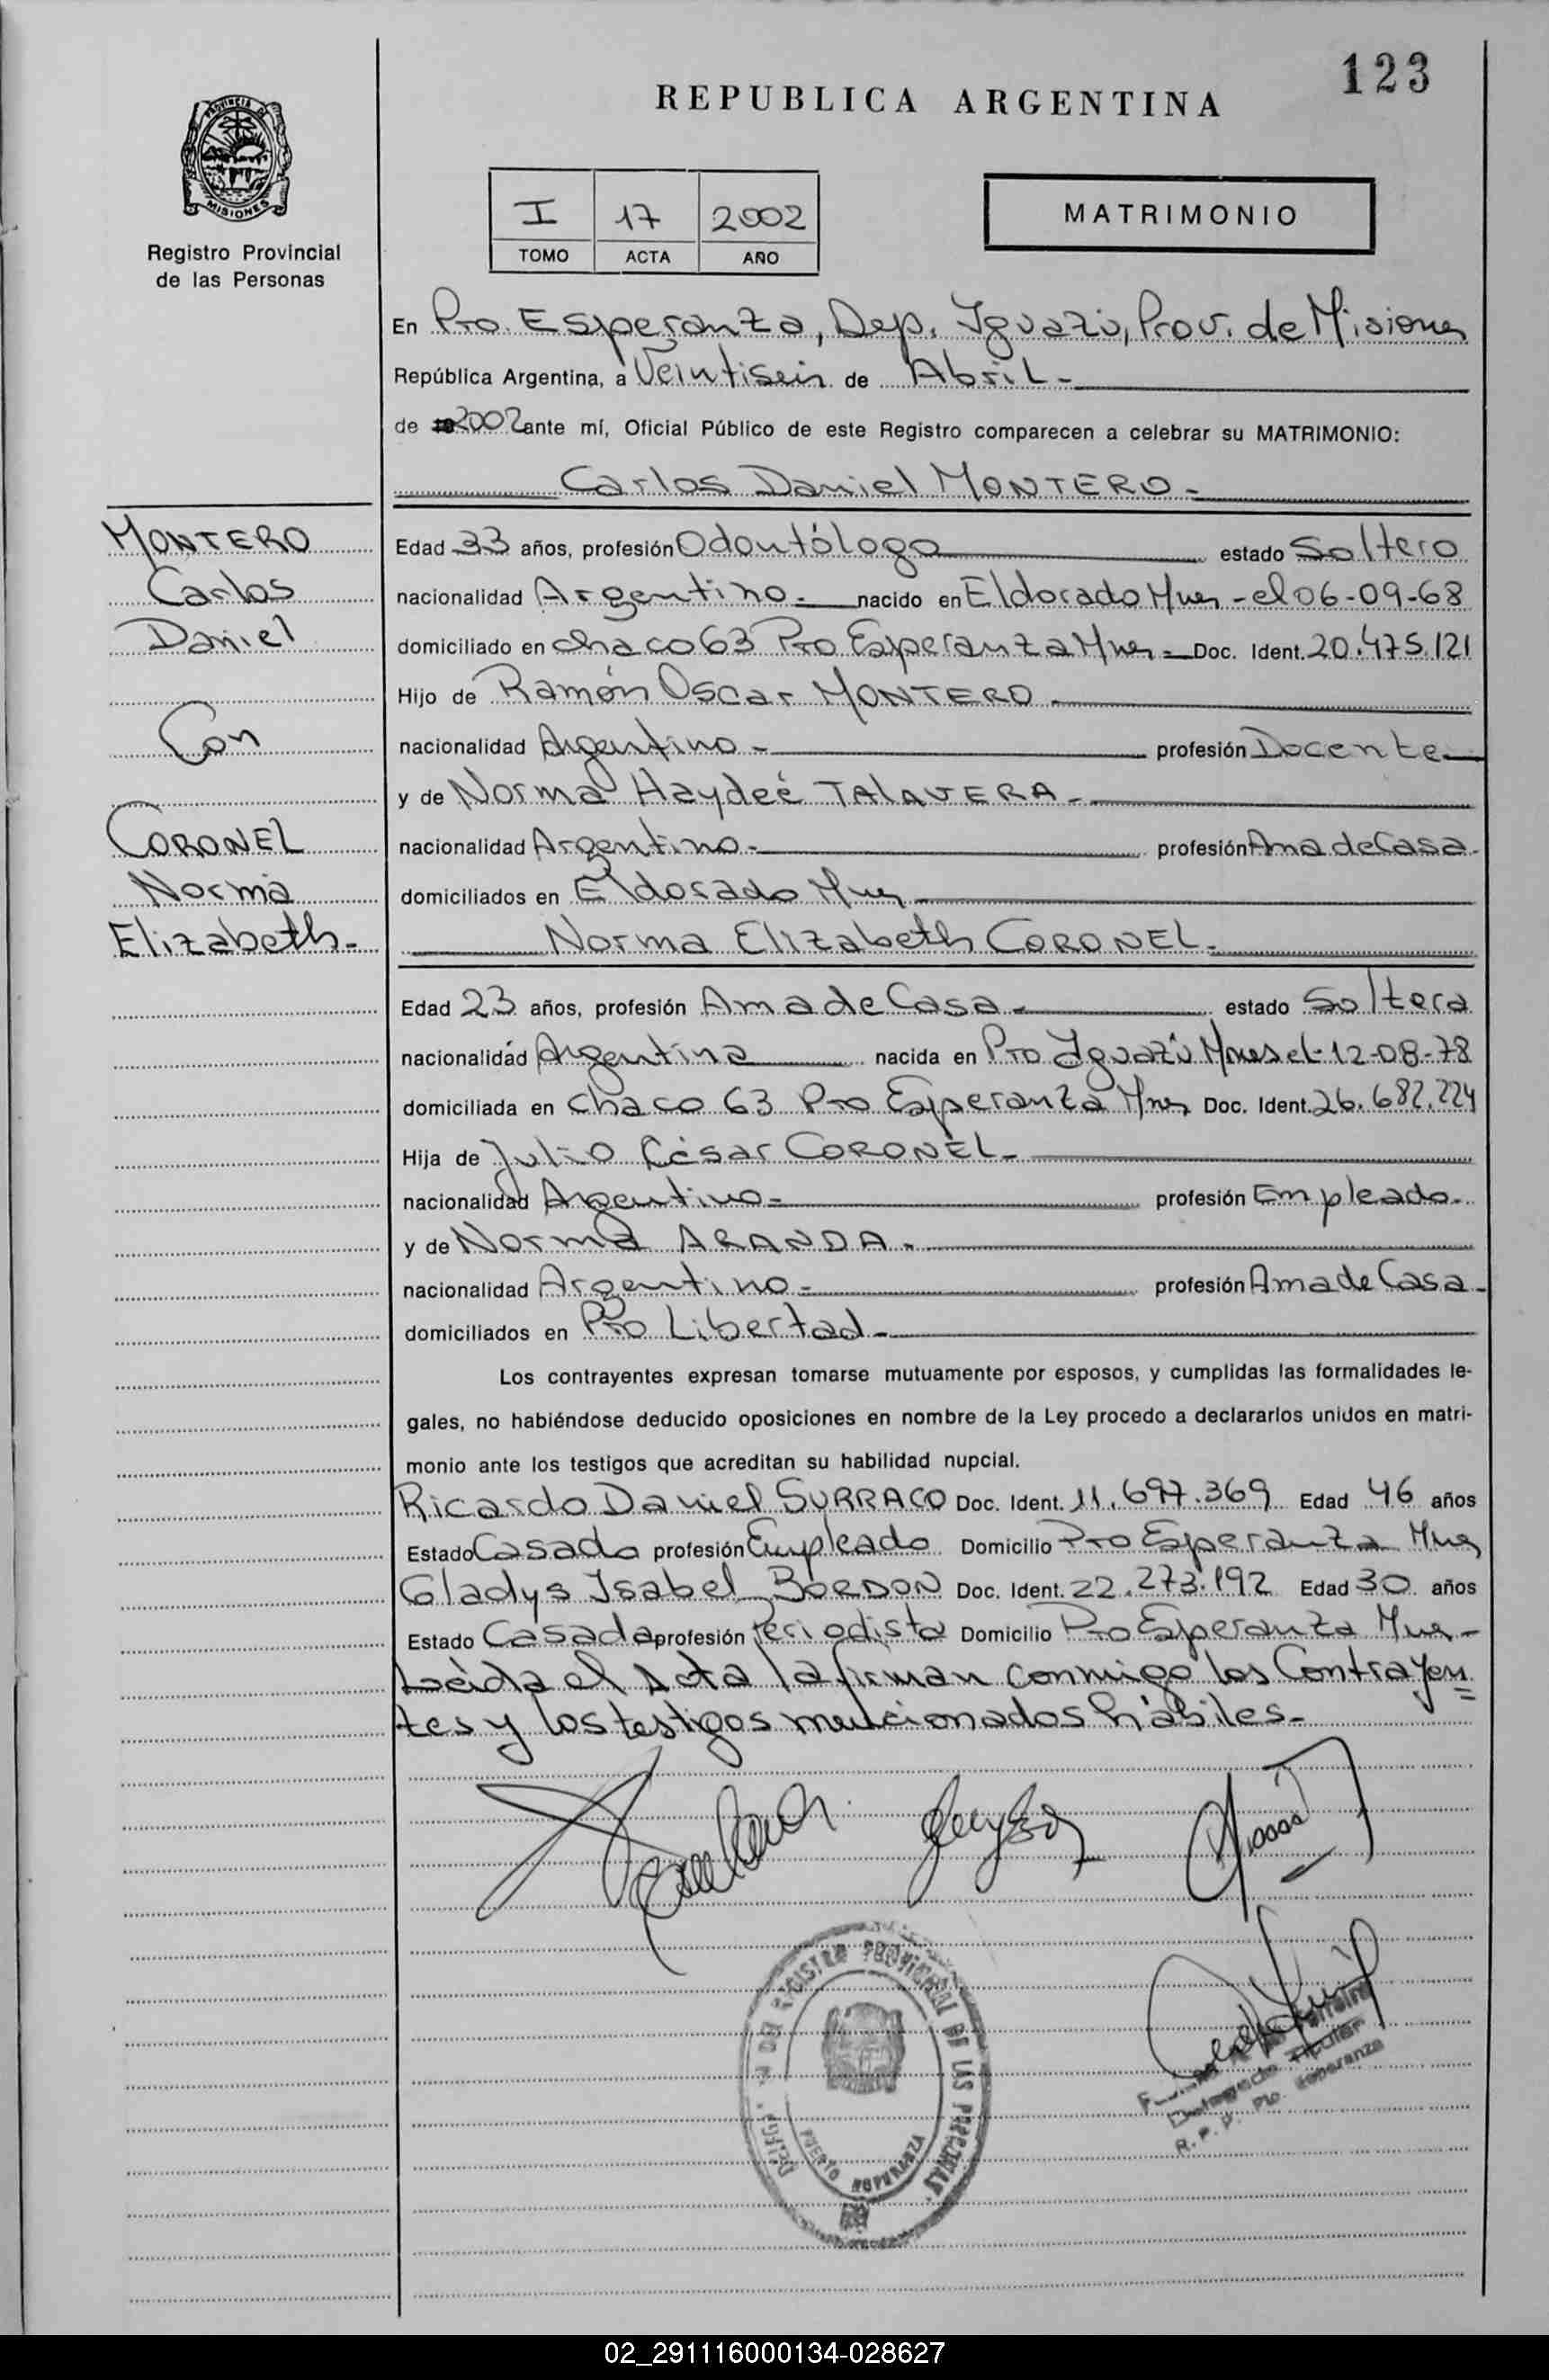 123
REPUBLICA ARGENTINA
PROVINCIA DE
MISIONES
Registro Provincial
de las Personas
I 17 2002
TOMO ACTA AÑO
MATRIMONIO
En Pto. Esperanza, Dep. Iguazú, Prov. de Misiones
República Argentina, a Veintiseis de Abril -
de 2002 ante mí, Oficial Público de este Registro comparecen a celebrar su MATRIMONIO:
Carlos Daniel MONTERO -
MONTERO
Carlos
Daniel
Con
CORONEL
Norma
Elizabeth -
Edad 33 años, profesión Odontólogo estado Soltero
nacionalidad Argentino - nacido en Eldorado Mnes - el 06-09-68
domiciliado en chaco 63 Pto Esperanza Mnes - Doc. Ident. 20.475.121
Hijo de Ramón Oscar MONTERO -
nacionalidad Argentino - profesión Docente
y de Norma Haydeé TALAVERA -
nacionalidad Argentino - profesión Ama de Casa -
domiciliados en Eldorado Mnes
Norma Elizabeth CORONEL -
Edad 23 años, profesión Ama de Casa - estado Soltera
nacionalidad Argentina nacida en Pto Iguazú Mnes el 12-08-78
domiciliada en chaco 63 Pto Esperanza Mnes Doc. Ident. 26.682.224
Hija de Julio César CORONEL -
nacionalidad Argentino - profesión Empleado -
y de Norma ARANDA -
nacionalidad Argentino - profesión Ama de Casa -
domiciliados en Pto Libertad -
Los contrayentes expresan tomarse mutuamente por esposos, y cumplidas las formalidades le-
gales, no habiéndose deducido oposiciones en nombre de la Ley procedo a declararlos unidos en matri-
monio ante los testigos que acreditan su habilidad nupcial.
Ricardo Daniel SURRACO Doc. Ident. 11.697.369 Edad 46 años
Estado Casado profesión Empleado Domicilio Pto Esperanza Mnes
Gladys Isabel BORDON Doc. Ident. 22.273.192 Edad 30 años
Estado Casada profesión Periodista Domicilio Pto Esperanza Mnes -
Leída el Acta la firman conmigo los Contrayen=
tes y los testigos mencionados hábiles -
DEL REGISTRO PROVINCIAL DE LAS PERSONAS
PUERTO ESPERANZA
Delegado Titular
R. P. P. Pto. Esperanza
02_291116000134-028627